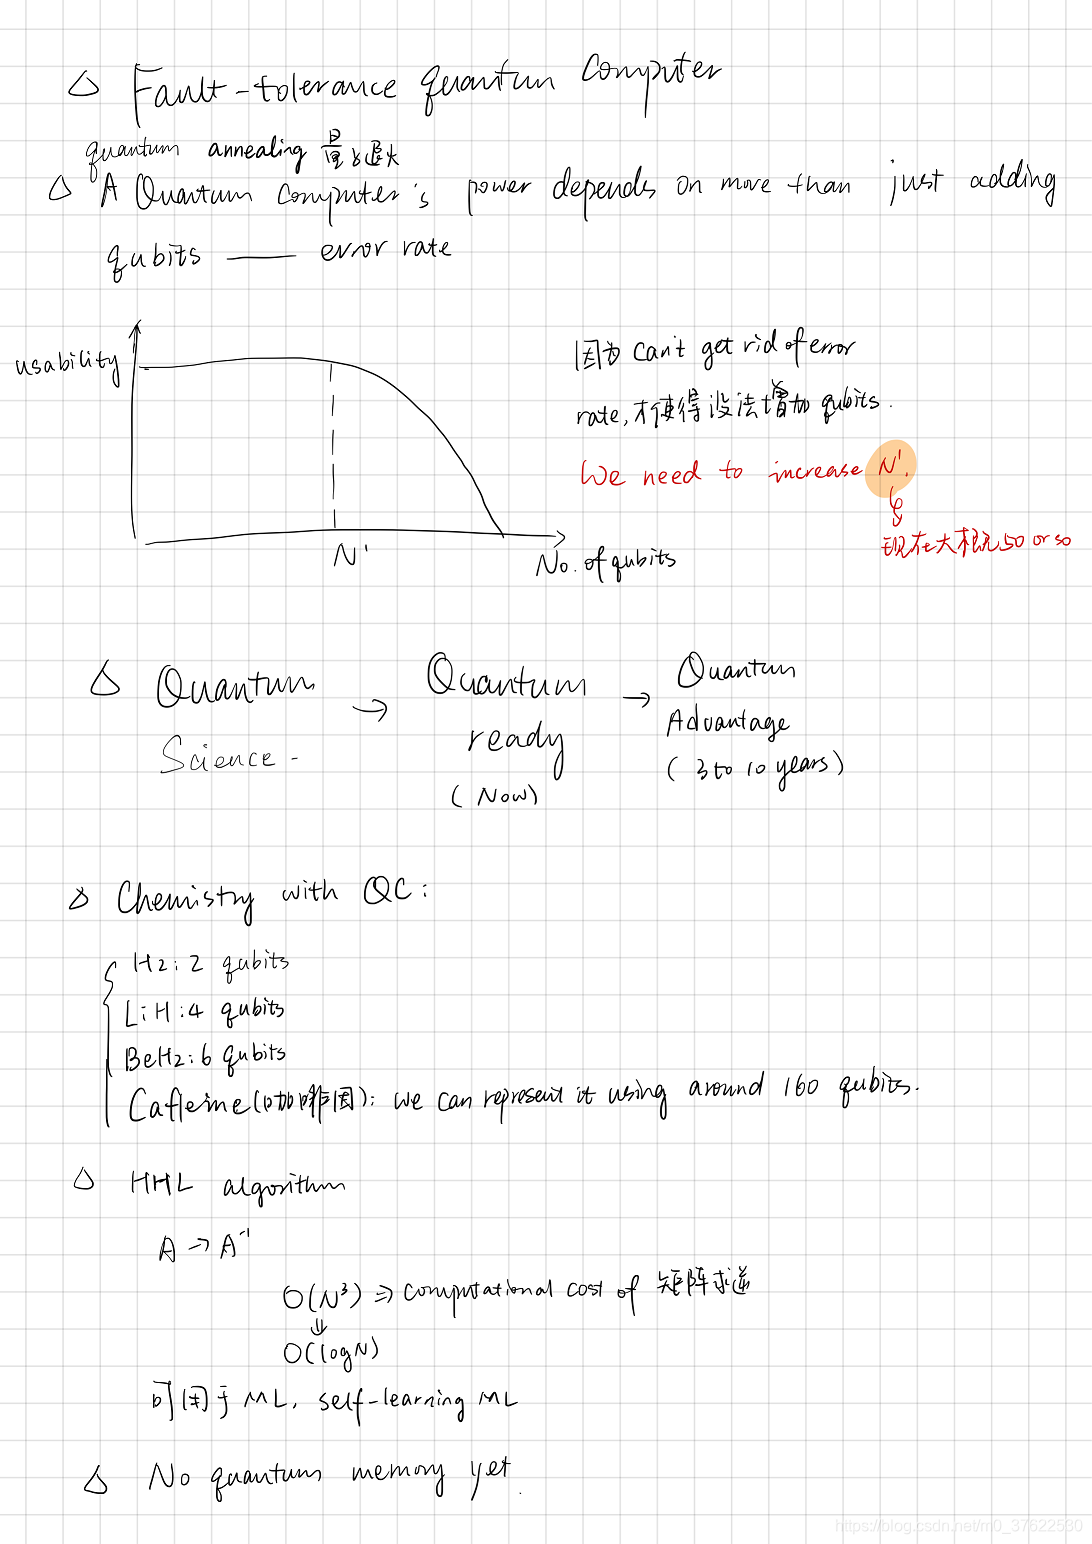 △ Fault-tolerance quantum computer
quantum annealing 量子退火
△ A Quantum Computer's power depends on more than just adding
qubits —— error rate
usability
N'
No. of qubits
因为 can't get rid of error
rate, 才使得没法增加 qubits.
We need to increase N'.
现在大概50 or so
△ Quantum Science → Quantum ready (Now) → Quantum Advantage (3 to 10 years)
△ Chemistry with QC:
H2: 2 qubits
LiH: 4 qubits
BeH2: 6 qubits
Caffeine(咖啡因): we can represent it using around 160 qubits.
△ HHL algorithm
A → A⁻¹
O(N³) => computational cost of 矩阵求逆
⇓
O(logN)
可用于 ML, self-learning ML
△ No quantum memory yet.
https://blog.csdn.net/m0_37622530